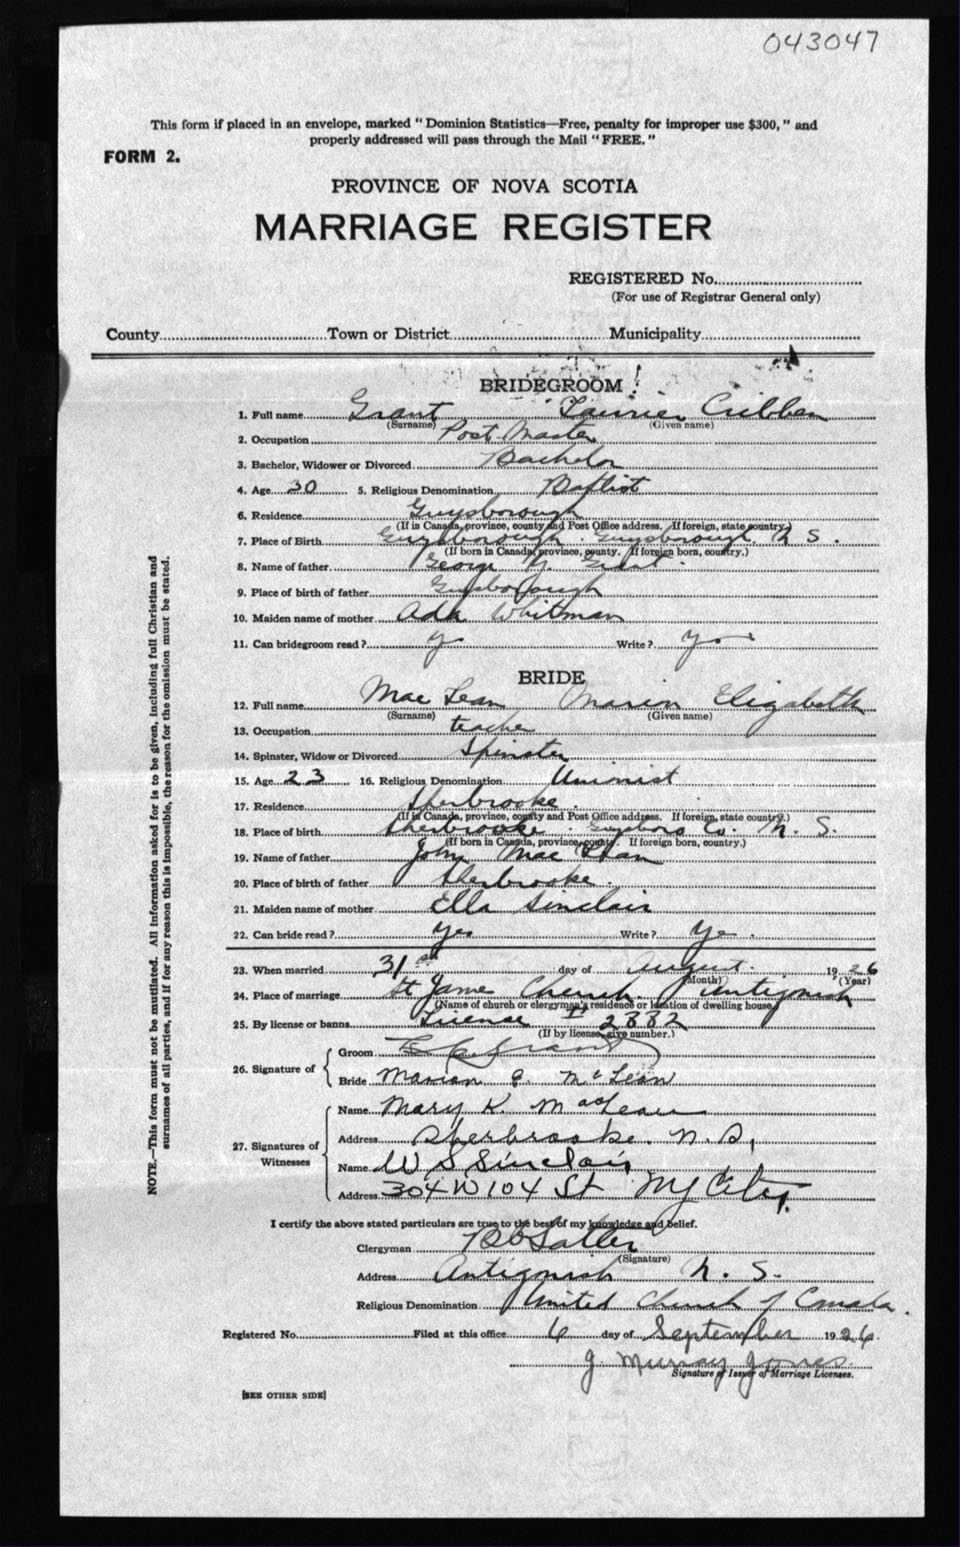 043047
This form if placed in an envelope, marked "Dominion Statistics—Free, penalty for improper use $300," and
properly addressed will pass through the Mail "FREE."
FORM 2.
PROVINCE OF NOVA SCOTIA
MARRIAGE REGISTER
REGISTERED No.
(For use of Registrar General only)
County Town or District Municipality
BRIDEGROOM
1. Full name Grant Laurier Cribben
(Surname) (Given name)
2. Occupation Post Master
3. Bachelor, Widower or Divorced Bachelor
4. Age 30 5. Religious Denomination Baptist
6. Residence Guysborough
(If in Canada, province, county and Post Office address. If foreign, state country.)
7. Place of Birth Guysborough. Guysborough. N S.
(If born in Canada, province, county. If foreign born, country.)
8. Name of father George Grant.
9. Place of birth of father Guysborough
10. Maiden name of mother Ada Whitman
11. Can bridegroom read? y Write? Yes
BRIDE
12. Full name Mac Lean Marion Elizabeth
(Surname) (Given name)
13. Occupation teacher
14. Spinster, Widow or Divorced Spinster
15. Age 23 16. Religious Denomination Unionist
17. Residence Sherbrooke.
(If in Canada, province, county and Post Office address. If foreign, state country.)
18. Place of birth Sherbrooke. Guysboro Co. N. S.
(If born in Canada, province, county. If foreign born, country.)
19. Name of father John Mac Lean
20. Place of birth of father Sherbrooke.
21. Maiden name of mother Ella Sinclair
22. Can bride read? Yes Write? Ye.
23. When married 31st day of August. 1926
(Month) (Year)
24. Place of marriage St Jame Church. Antigonish
(Name of church or clergyman's residence or location of dwelling house)
25. By license or banns License 2882
(If by license, give number.)
26. Signature of
Groom Grant
Bride Marion E. McLean
27. Signatures of
Witnesses
Name Mary K. MacLean
Address Sherbrooke. N. S.
Name W S Sinclair
Address 304 W 104 St NY City.
I certify the above stated particulars are true to the best of my knowledge and belief.
Clergyman
(Signature)
Address Antigonish N. S.
Religious Denomination United Church of Canada.
Registered No. Filed at this office 6 day of September 1926.
J. Murray Jones
Signature of Issuer of Marriage Licenses.
[SEE OTHER SIDE]
NOTE.—This form must not be mutilated. All information asked for is to be given, including full Christian and
surnames of all parties, and if for any reason this is impossible, the reason for the omission must be stated.